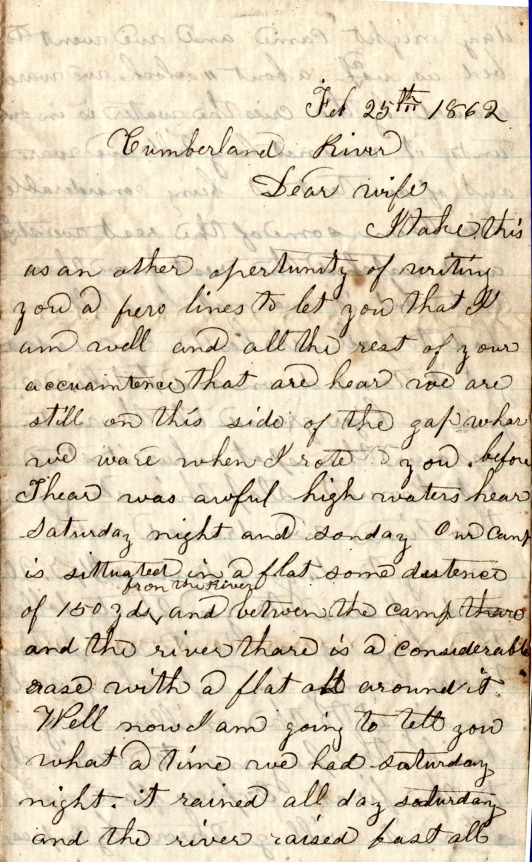 Feb 25th 1862
Cumberland River
Dear wife
I take this
as an other opertunity of writing
you a few lines to let you that I
am well and all the rest of your
accuaintence that are hear we are
still on this side of the gap whar
we ware when I rote you before
Thear was awful high waters hear
saturday night and sonday Our camp
is sittuated in a flat some distence
from the River
of 150 yds, and between the camp thare
and the river thare is a considerable
rase with a flat all around it
Well now I am going to tell you
what a time we had saturday
night. it rained all day saturday
and the river raised fast all